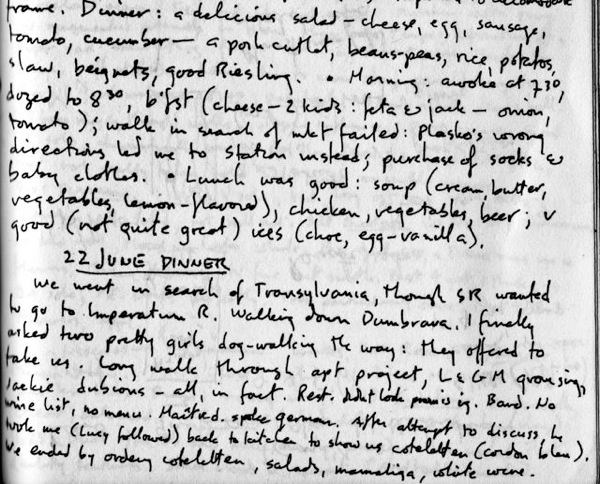 frame. Dinner: a delicious salad – cheese, egg, sausage,
tomato, cucumber – a pork cutlet, beans-peas, rice, potatos,
slaw, beignets, good Riesling. • Morning: awoke at 7 30,
dozed to 8 30, b'fst (cheese – 2 kids: feta & jack – onion,
tomato); walk in search of mkt failed: Plasko's wrong
directions led me to station instead; purchase of socks &
baby clothes. • Lunch was good: soup (cream, butter,
vegetables, lemon-flavored), chicken, vegetables, beer; v
good (not quite great) ices (choc, egg-vanilla).
22 JUNE DINNER
We went in search of Transylvania, though SR wanted
to go to Imperatum R. Walking down Dumbrava, I finally
asked two pretty girls dog-walking the way: they offered to
take us. Long walk through apt project, L & GM grousing,
Jackie dubious – all, in fact. Rest. didn't look promising. Band. No
wine list, no menu. Maitre d. spoke german, After attempt to discuss, he
took me (Lucy followed) back to kitchen to show us coteletten (cordon bleu).
We ended by ordering coteletten, salads, mamaliga, white wine.